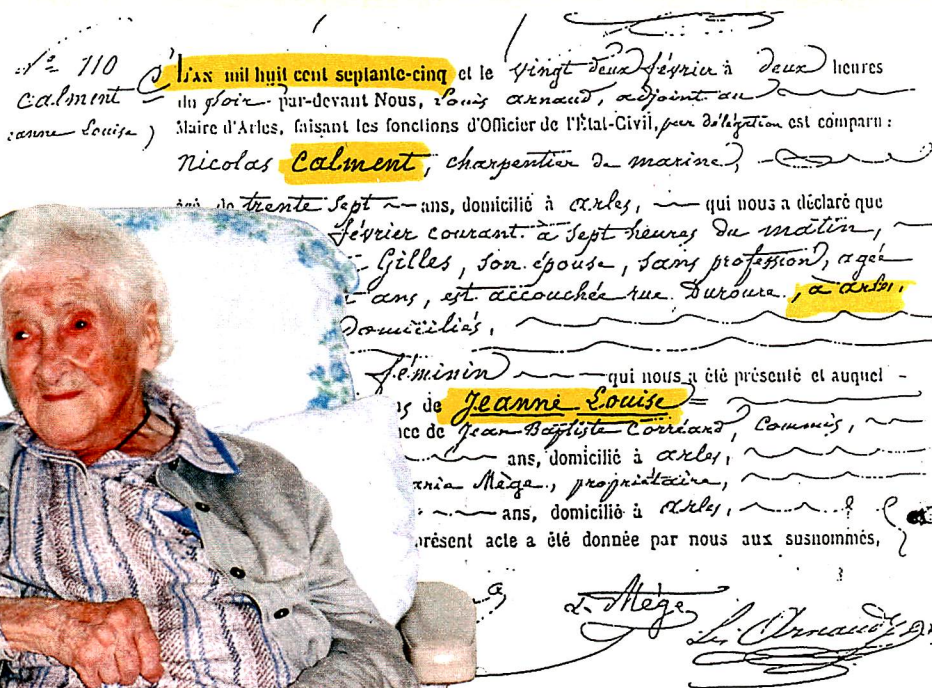 N° 110
Calment
Jeanne Louise
L'AN mil huit cent septante-cinq et le vingt deux février à deux heures
du soir par-devant Nous, Louis Arnaud, adjoint au
Maire d'Arles, faisant les fonctions d'Officier de l'État-Civil, par délégation est comparu :
Nicolas Calment, charpentier de marine,
âgé de trente sept ans, domicilié à Arles, qui nous a déclaré que
février courant à sept heures du matin,
Gilles, son épouse, sans profession, agée
ans, est accouchée rue Duroure, à arles,
Domiciliés,
féminin qui nous a été présenté et auquel
de Jeanne Louise
de Jean-Baptiste Corréard, Commis,
ans, domicilié à arles,
Mège, propriétaire,
ans, domicilié à Arles,
présent acte a été donnée par nous aux susnommés,
L. Mège
Ls. Arnaud